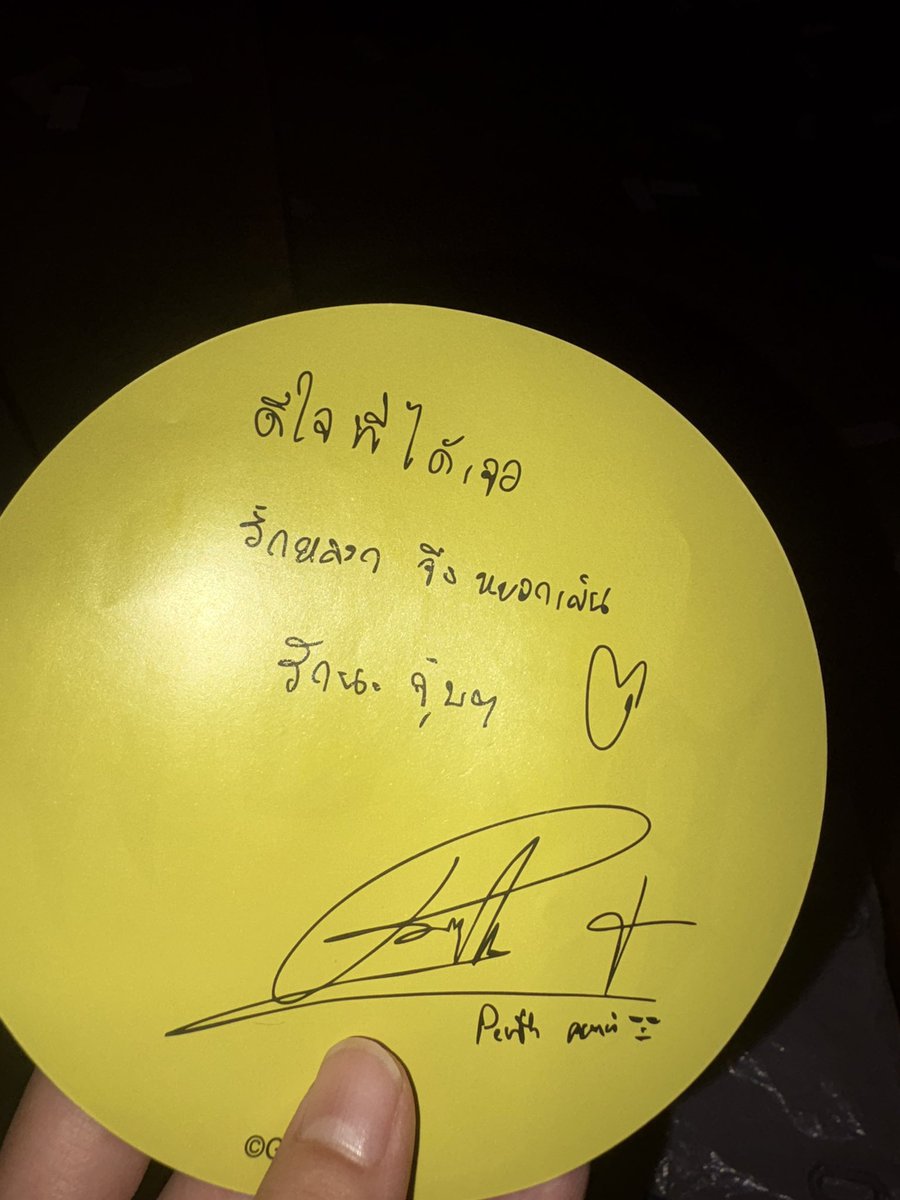 ดีใจที่ได้เจอ
รักหลอก จึงหยอกเล่น
รักนะ จุ๊บๆ
Perth
©G